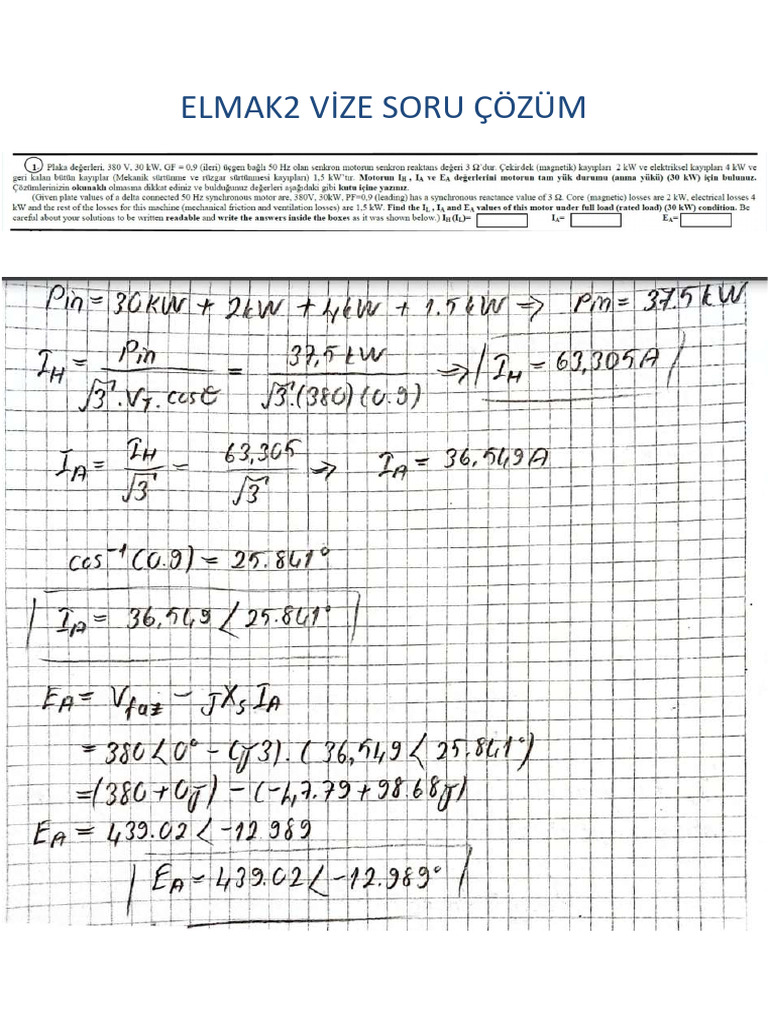 ELMAK2 VİZE SORU ÇÖZÜM
1. Plaka değerleri, 380 V, 30 kW, GF = 0,9 (ileri) üçgen bağlı 50 Hz olan senkron motorun senkron reaktans değeri 3 Ω'dur. Çekirdek (magnetik) kayıpları 2 kW ve elektriksel kayıpları 4 kW ve
geri kalan bütün kayıplar (Mekanik sürtünme ve rüzgar sürtünmesi kayıpları) 1,5 kW'tır. Motorun IH , IA ve EA değerlerini motorun tam yük durumu (anma yükü) (30 kW) için bulunuz.
Çözümlerinizin okunaklı olmasına dikkat ediniz ve bulduğunuz değerleri aşağıdaki gibi kutu içine yazınız.
(Given plate values of a delta connected 50 Hz synchronous motor are, 380V, 30kW, PF=0,9 (leading) has a synchronous reactance value of 3 Ω. Core (magnetic) losses are 2 kW, electrical losses 4
kW and the rest of the losses for this machine (mechanical friction and ventilation losses) are 1,5 kW. Find the IL , IA and EA values of this motor under full load (rated load) (30 kW) condition. Be
careful about your solutions to be written readable and write the answers inside the boxes as it was shown below.) IH (IL)= IA= EA=
Pin = 30KW + 2kW + 4kW + 1.5kW => Pin = 37.5 kW
IH = Pin / √3.VT.cosθ = 37,5 kW / √3.(380)(0.9) => IH = 63,305A
IA = IH / √3 = 63,305 / √3 => IA = 36,549A
cos⁻¹(0.9) = 25.841°
IA = 36,549 ∠25.841°
EA = Vfaz - JXsIA
= 380∠0° - (J3).(36,549∠25.841°)
=(380+0J) - (-47.79+98.68J)
EA = 439.02∠-12 989
EA = 439.02∠-12.989°